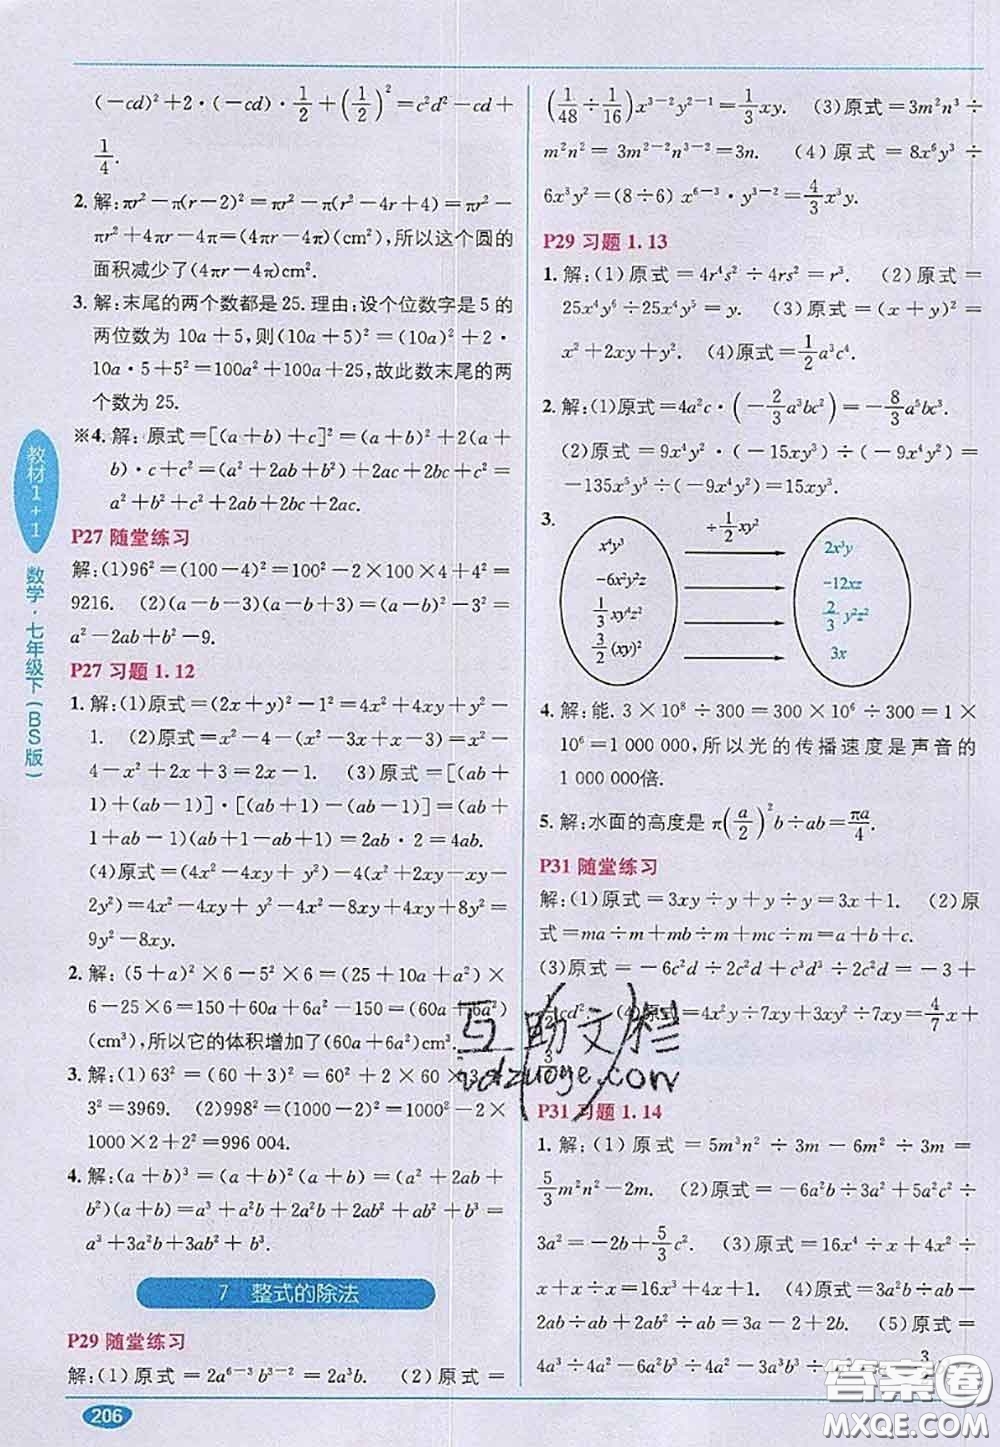 (-cd)²+2·(-cd)·1/2+(1/2)²=c²d²-cd+
1/4.
2. 解:πr²-π(r-2)²=πr²-π(r²-4r+4)=πr²-
πr²+4πr-4π=(4πr-4π)(cm²),所以这个圆的
面积减少了(4πr-4π)cm².
3. 解:末尾的两个数都是 25. 理由:设个位数字是 5 的
两位数为 10a+5,则(10a+5)²=(10a)²+2·
10a·5+5²=100a²+100a+25,故此数末尾的两
个数为 25.
※4. 解:原式=[(a+b)+c]²=(a+b)²+2(a+
b)·c+c²=(a²+2ab+b²)+2ac+2bc+c²=
a²+b²+c²+2ab+2bc+2ac.
P27 随堂练习
解:(1)96²=(100-4)²=100²-2×100×4+4²=
9216. (2)(a-b-3)(a-b+3)=(a-b)²-3²=
a²-2ab+b²-9.
P27 习题 1.12
1. 解:(1)原式=(2x+y)²-1²=4x²+4xy+y²-
1. (2)原式=x²-4-(x²-2x+x-2)=x²
-4-x²+2x+3=2x-1. (3)原式=[(ab+
1)+(ab-1)]·[(ab+1)-(ab-1)]=(ab+
1+ab-1)(ab+1-ab+1)=2ab·2=4ab.
(4)原式=(4x²-4xy+y²)-4(x²+2xy-xy-
2y²)=4x²-4xy+y²-4x²-8xy+4xy+8y²=
9y²-8xy.
2. 解:(5+a)²×6-5²×6=(25+10a+a²)×
6-25×6=150+60a+6a²-150=(60a+6a²)
(cm³),所以它的体积增加了(60a+6a²)cm³.
3. 解:(1)63²=(60+3)²=60²+2×60×3+
3²=3969. (2)998²=(1000-2)²=1000²-2×
1000×2+2²=996 004.
4. 解:(a+b)³=(a+b)²(a+b)=(a²+2ab+
b²)(a+b)=a³+a²b+2a²b+2ab²+ab²+b³=
a³+3a²b+3ab²+b³.
7 整式的除法
P29 随堂练习
解:(1)原式=2a⁶⁻³b³⁻²=2a³b. (2)原式=
(1/48÷1/16)x³⁻²y²⁻¹=1/3xy. (3)原式=3m²n³÷
m²n²=3m²⁻²n³⁻²=3n. (4)原式=8x⁶y³÷
6x³y²=(8÷6)x⁶⁻³·y³⁻²=4/3x³y.
P29 习题 1.13
1. 解:(1)原式=4r⁴s²÷4rs²=r³. (2)原式=
25x⁴y⁶÷25x⁴y⁵=y. (3)原式=(x+y)²=
x²+2xy+y². (4)原式=1/2a³c⁴.
2. 解:(1)原式=4a²c·(-2/3a³bc²)=-8/3a⁵bc³.
(2)原式=9x⁴y²·(-15xy³)÷(-9x⁴y²)=
-135x⁵y⁵÷(-9x⁴y²)=15xy³.
3. ÷1/2xy²
x⁴y³ 2x³y
-6x²y²z -12xz
1/3xy⁴z² 2/3y²z²
3/2(xy)² 3x
4. 解:能. 3×10⁸÷300=300×10⁶÷300=1×
10⁶=1 000 000,所以光的传播速度是声音的
1 000 000倍.
5. 解:水面的高度是 π(a/2)²b÷ab=πa/4.
P31 随堂练习
解:(1)原式=3xy÷y+y÷y=3x+1. (2)原
式=ma÷m+mb÷m+mc÷m=a+b+c.
(3)原式=-6c²d÷2c²d+c³d³÷2c²d=-3+
cd². (4)原式=4x²y÷7xy+3xy²÷7xy=4/7x+
P31 习题 1.14
1. 解:(1)原式=5m³n²÷3m-6m²÷3m=
5/3m²n²-2m. (2)原式=-6a²b÷3a²+5a²c²÷
3a²=-2b+5/3c². (3)原式=16x⁴÷x+4x²÷
x+x÷x=16x³+4x+1. (4)原式=3a²b÷ab-
2ab÷ab+2ab²÷ab=3a-2+2b. (5)原式=
4a³÷4a-6a²b÷4a-12a³b²÷4a=a²-3
教材1+1
数学·七年级下(BS版)
206
互助文栏
vdzuoye.com
答案圈
MXQE.COM